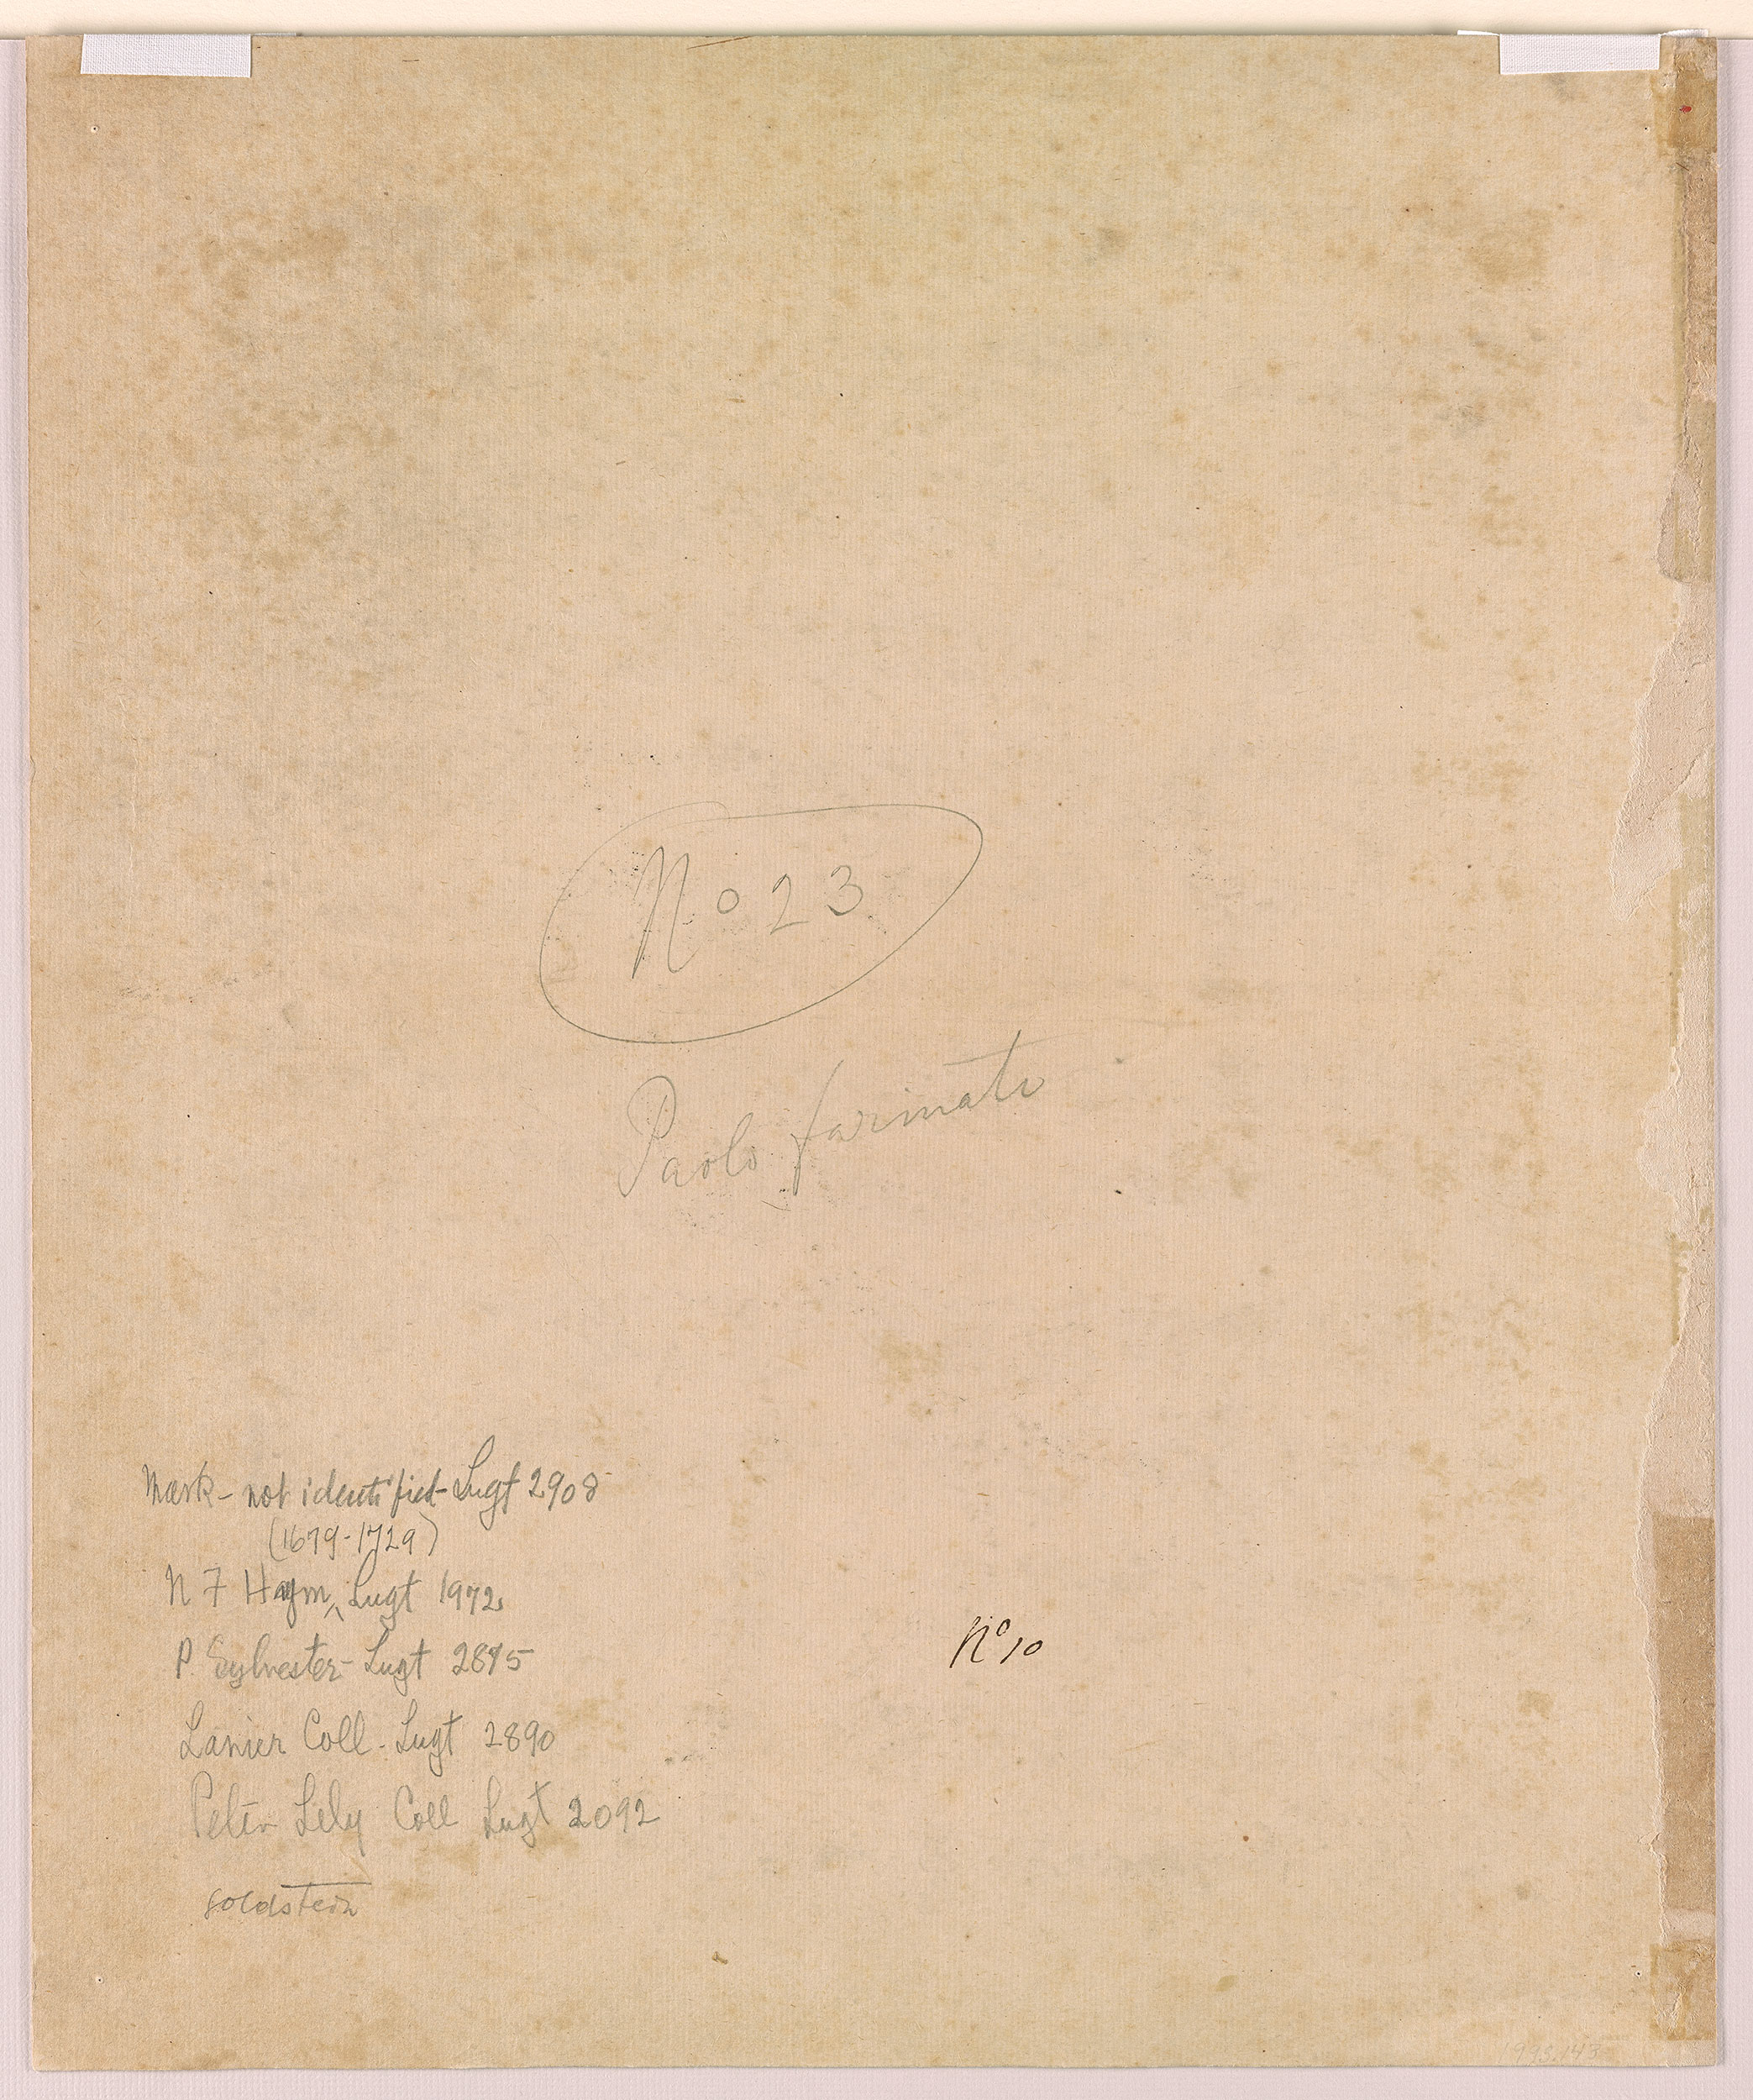 No 23
Paolo farinato
Mark - not identified - Lugt 2908
(1679-1729)
N F Haym ^ Lugt 1972
P. Sylvester - Lugt 2875
Lanier Coll - Lugt 2890
Peter Lely Coll Lugt 2092
Goldstein
No 10